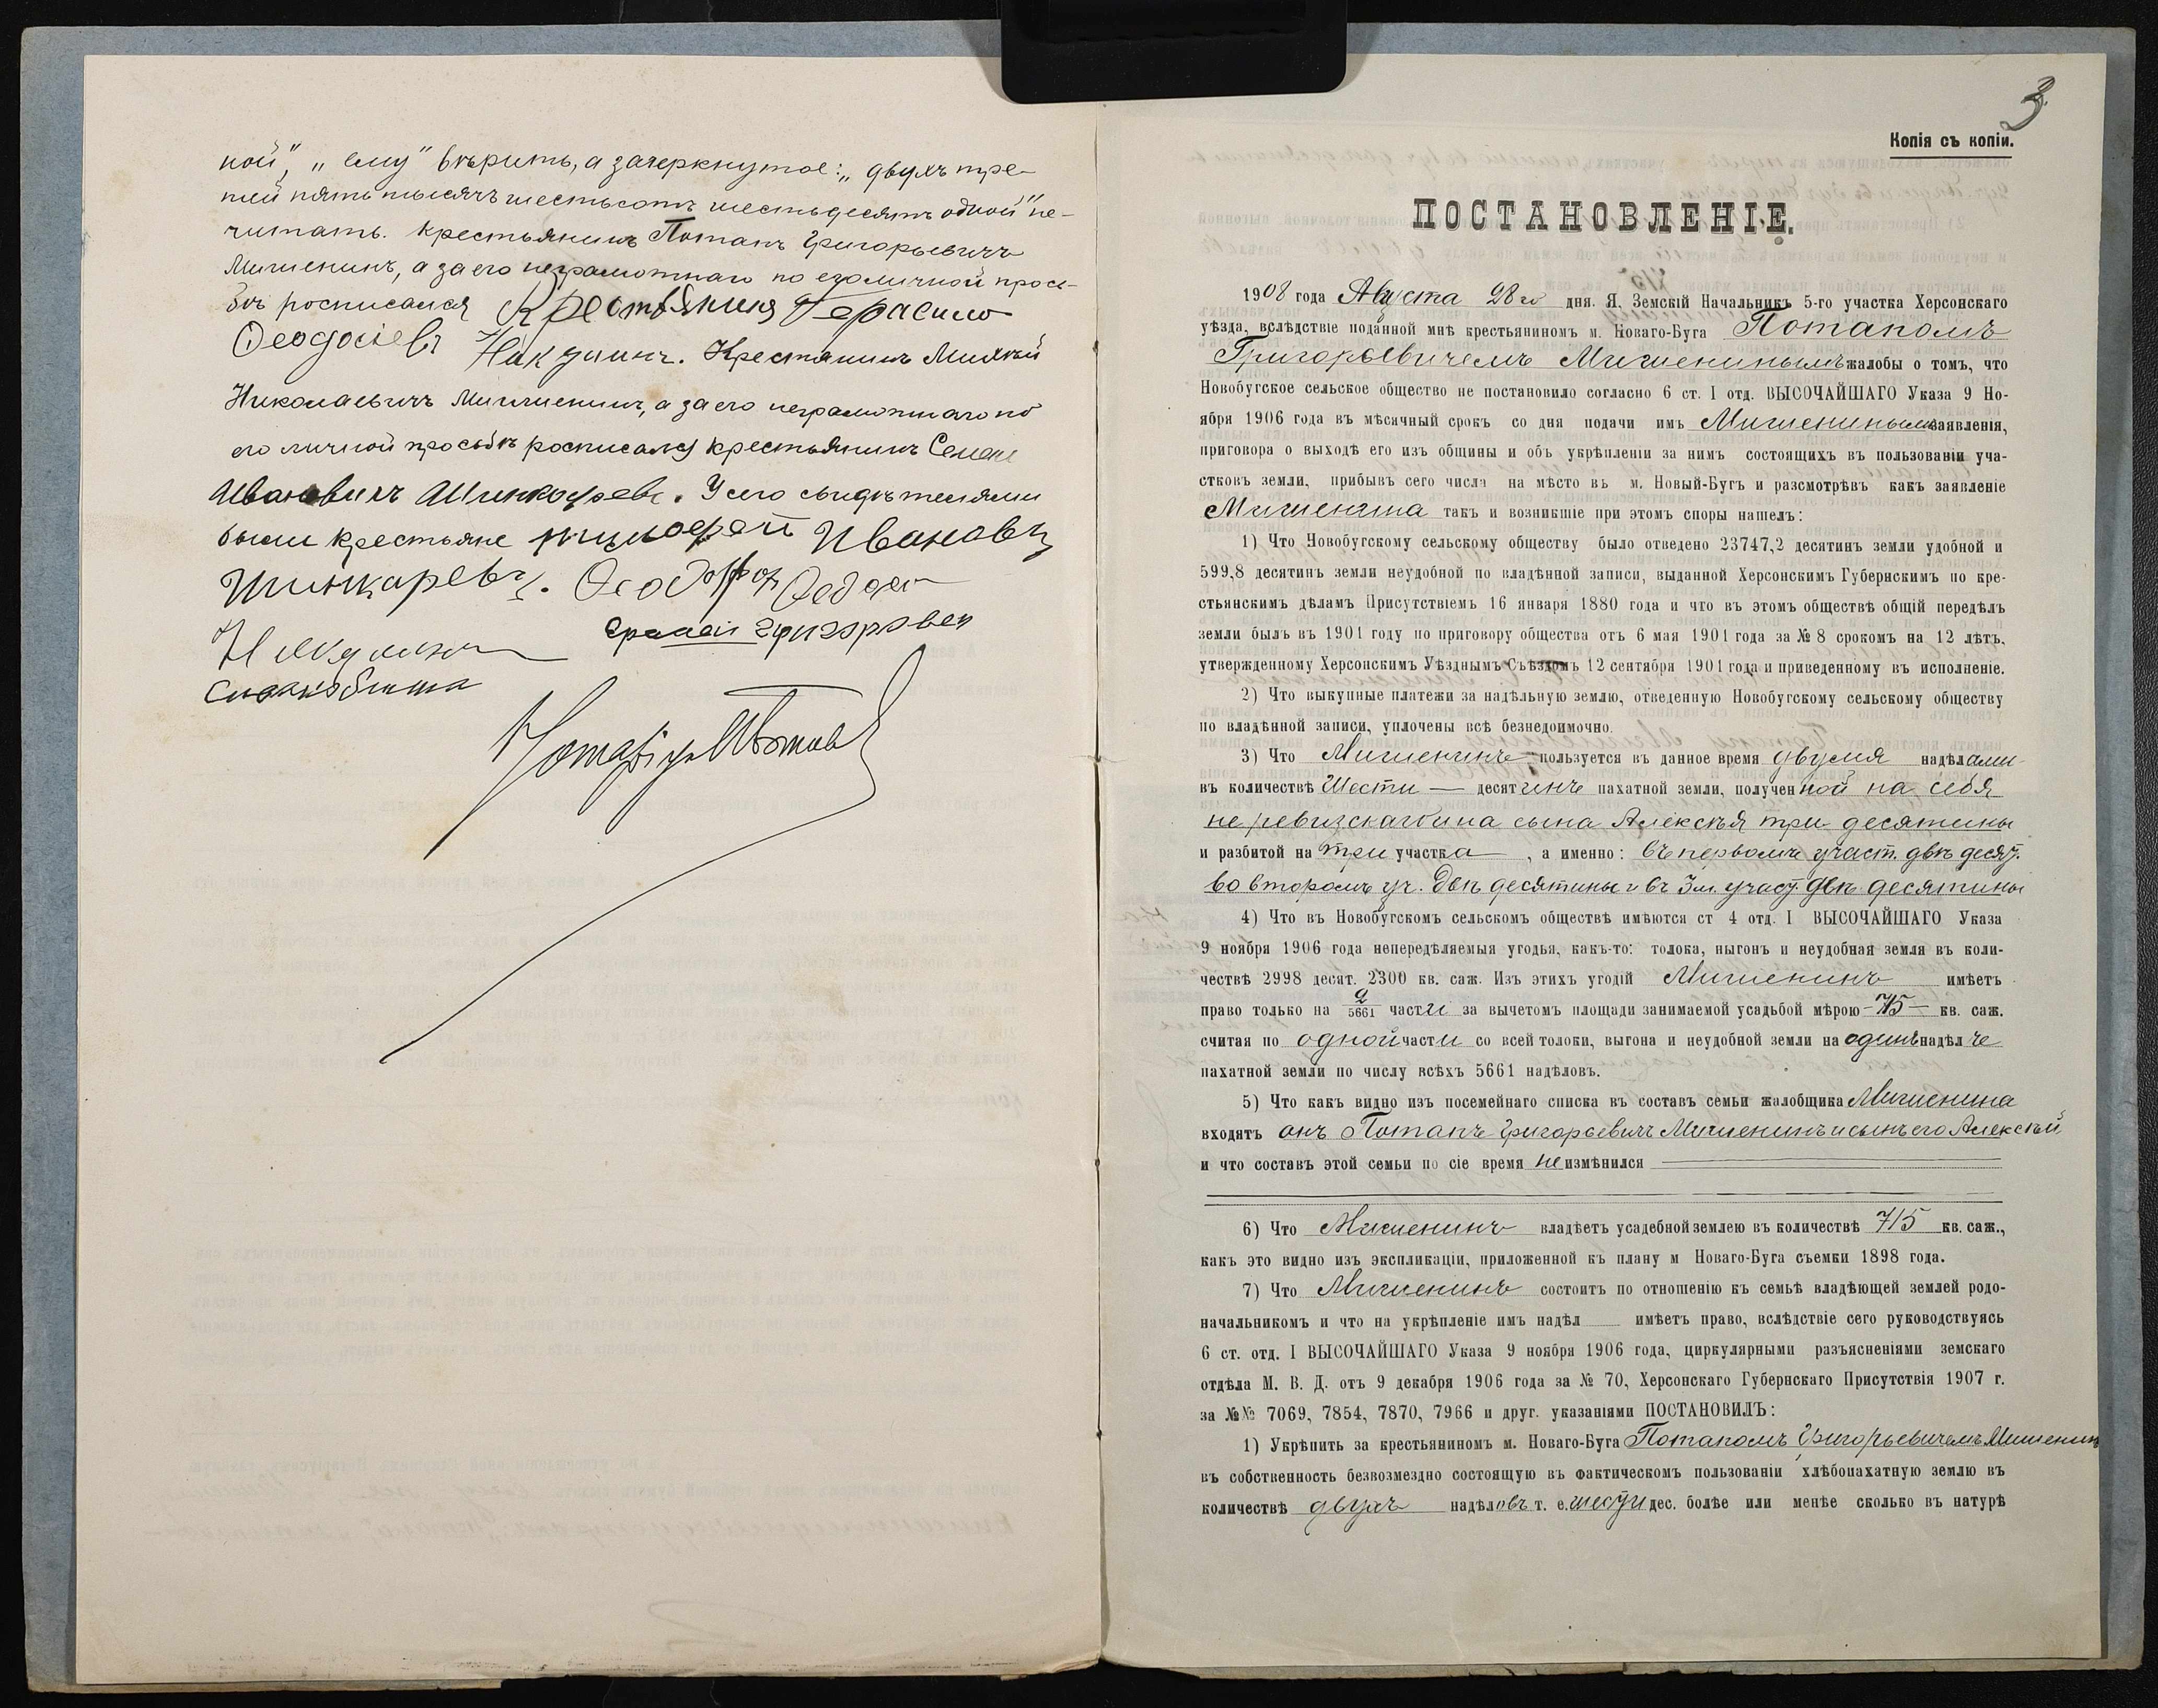 ной", "ему" вѣрить, а зачеркнутое: "двухъ тре-
тей пять тысячъ шестьсотъ шестьдесятъ одной" не-
читать. Крестьянинъ Потапъ Григорьевичъ
Мишенинъ, а за его неграмотнаго по его личной прось-
бѣ росписался Крестьянинъ Герасимъ
Феодосіевъ Никулинъ. Крестянинъ Михѣй
Николаевичъ Мишенинъ, а за его неграмотнаго по
его личной просьбѣ росписался крестьянинъ Семенъ
Ивановичъ Шинкаревъ. У сего свидѣтелями
были крестьяне Тимофей Ивановъ
Шинкаревъ. Феодоръ
Никулинъ
Нотаріусъ
3
Копія съ копіи.
ПОСТАНОВЛЕНІЕ.
1908 года Августа 28го дня. Я, Земскій Начальникъ 5-го участка Херсонскаго
уѣзда, вслѣдствіе поданной мнѣ крестьяниномъ м. Новаго-Буга Потапомъ
Григорьевичемъ Мишенинымъ жалобы о томъ, что
Новобугское сельское общество не постановило согласно 6 ст. I отд. ВЫСОЧАЙШАГО Указа 9 Но-
ября 1906 года въ мѣсячный срокъ со дня подачи имъ Мишенинымъ заявленія,
приговора о выходѣ его изъ общины и объ укрѣпленіи за нимъ состоящихъ въ пользованіи уча-
стковъ земли, прибывъ сего числа на мѣсто въ м. Новый-Бугъ и разсмотрѣвъ какъ заявленіе
Мишенина такъ и возникшіе при этомъ споры нашелъ:
1) Что Новобугскому сельскому обществу было отведено 23747,2 десятинъ земли удобной и
599,8 десятинъ земли неудобной по владѣнной записи, выданной Херсонскимъ Губернскимъ по кре-
стьянскимъ дѣламъ Присутствіемъ 16 января 1880 года и что въ этомъ обществѣ общій передѣлъ
земли былъ въ 1901 году по приговору общества отъ 6 мая 1901 года за № 8 срокомъ на 12 лѣтъ,
утвержденному Херсонскимъ Уѣзднымъ Съѣздомъ 12 сентября 1901 года и приведенному въ исполненіе.
2) Что выкупные платежи за надѣльную землю, отведенную Новобугскому сельскому обществу
по владѣнной записи, уплочены всѣ безнедоимочно.
3) Что Мишенинъ пользуется въ данное время двумя надѣлами
въ количествѣ Шести — десятинъ пахатной земли, полученной на себя
не ревизскаго и на сына Алексѣя три десятины
и разбитой на три участка, а именно: въ первомъ участ. двѣ десят.
во второмъ уч. двѣ десятины и въ 3м. участ. двѣ десятины
4) Что въ Новобугскомъ сельскомъ обществѣ имѣются ст 4 отд. I ВЫСОЧАЙШАГО Указа
9 ноября 1906 года непередѣляемыя угодья, какъ-то: толока, выгонъ и неудобная земля въ коли-
чествѣ 2998 десят. 2300 кв. саж. Изъ этихъ угодій Мишенинъ имѣетъ
право только на 2/5661 части за вычетомъ площади занимаемой усадьбой мѣрою — 715 — кв. саж.
считая по одной части со всей толоки, выгона и неудобной земли на одинъ надѣлъ
пахатной земли по числу всѣхъ 5661 надѣловъ.
5) Что какъ видно изъ посемейнаго списка въ составъ семьи жалобщика Мишенина
входятъ онъ Потапъ Григорьевичъ Мишенинъ и сынъ его Алексѣй
и что составъ этой семьи по сіе время не измѣнился
6) Что Мишенинъ владѣетъ усадебной землею въ количествѣ 715 кв. саж.,
какъ это видно изъ экспликаціи, приложенной къ плану м Новаго-Буга съемки 1898 года.
7) Что Мишенинъ состоитъ по отношенію къ семьѣ владѣющей землей родо-
начальникомъ и что на укрѣпленіе имъ надѣл имѣетъ право, вслѣдствіе сего руководствуясь
6 ст. отд. I ВЫСОЧАЙШАГО Указа 9 ноября 1906 года, циркулярными разъясненіями земскаго
отдѣла М. В. Д. отъ 9 декабря 1906 года за № 70, Херсонскаго Губернскаго Присутствія 1907 г.
за №№ 7069, 7854, 7870, 7966 и друг. указаніями ПОСТАНОВИЛЪ:
1) Укрѣпить за крестьяниномъ м. Новаго-Буга Потапомъ Григорьевичемъ Мишенин
въ собственность безвозмездно состоящую въ фактическомъ пользованіи хлѣбопахатную землю въ
количествѣ двухъ надѣловъ т. е. шести дес. болѣе или менѣе сколько въ натурѣ